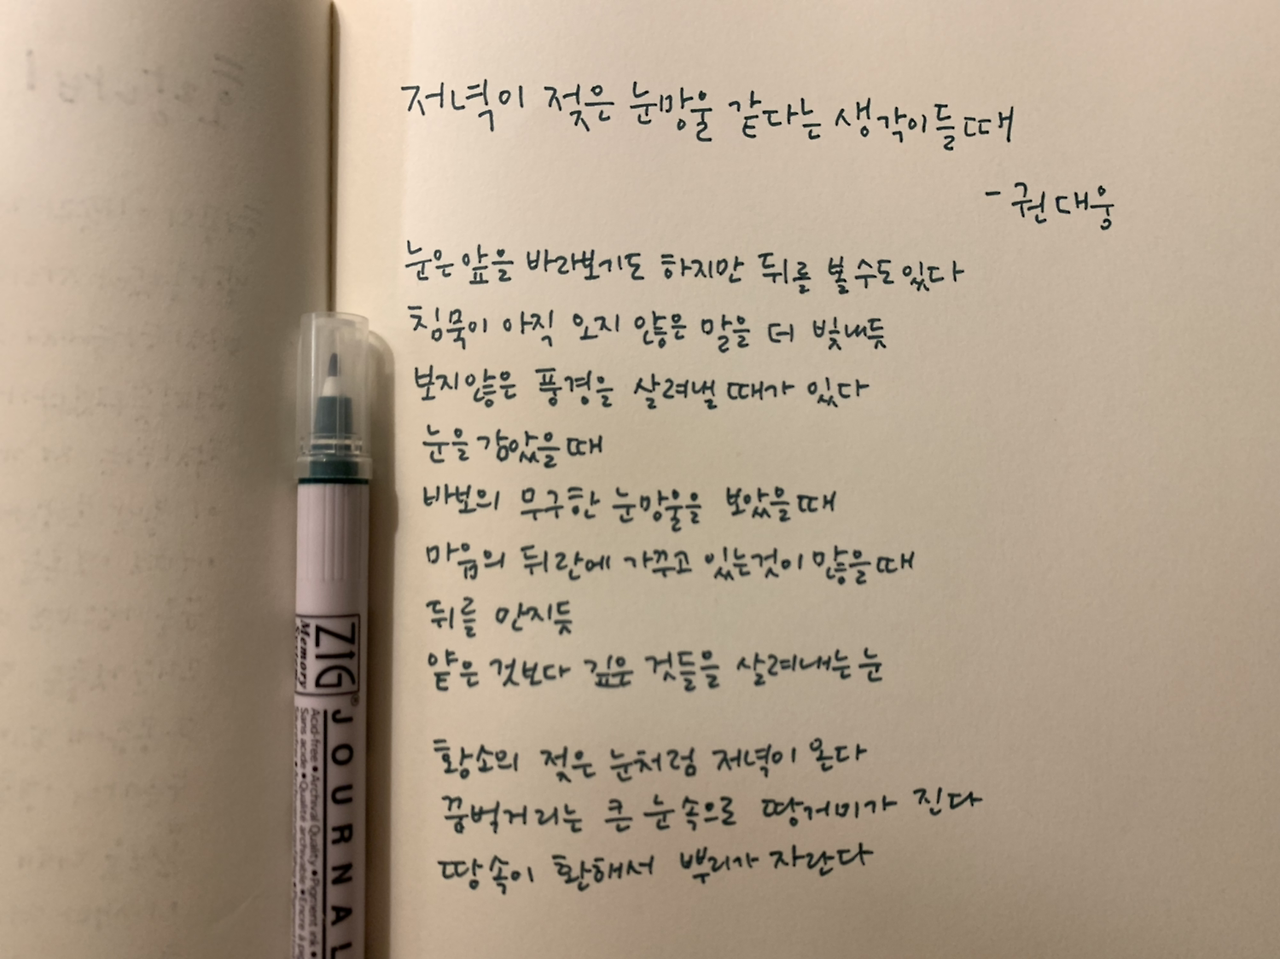 저녁이 젖은 눈망울 같다는 생각이들때
- 권대웅
눈은 앞을 바라보기도 하지만 뒤를 볼 수도 있다
침묵이 아직 오지 않은 말을 더 빛내듯
보지않은 풍경을 살려낼 때가 있다
눈을 감았을때
바보의 무구한 눈망울을 보았을때
마음의 뒤란에 가꾸고 있는것이 많을때
뒤를 만지듯
얕은 것보다 깊은 것들을 살려내는 눈
황소의 젖은 눈처럼 저녁이 온다
꿈벅거리는 큰 눈속으로 땅거미가 진다
땅속이 환해서 뿌리가 자란다
ZIG®
Memory
JOURNAL
Acid-free • Archival Quality • Pigment ink •
Sans acide • Qualité archivable • Encre à